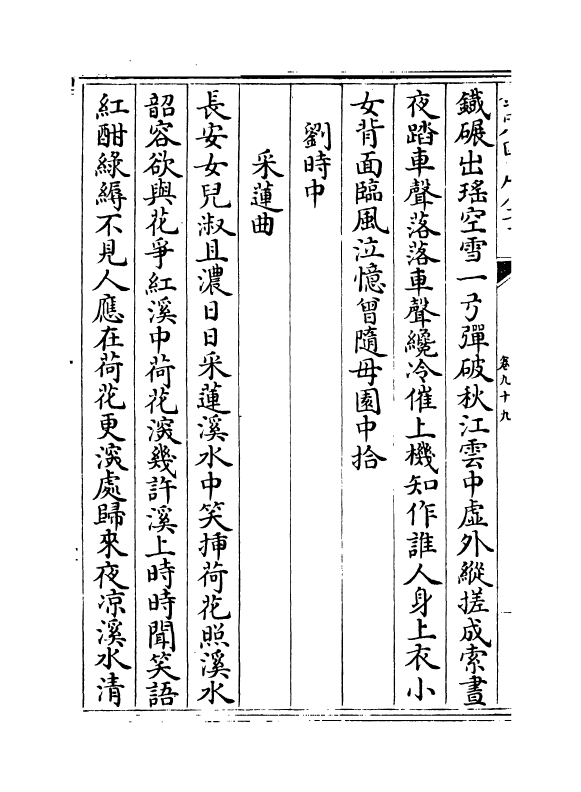 鐡碾出瑤空雪一弓彈破秋江雲中虚外縱搓成索晝
夜踏車聲落落車聲纔冷催上機知作誰人身上衣小
女背面臨風泣憶曾隨母園中拾
劉時中
采蓮曲
長安女兒淑且濃日日采蓮溪水中笑揷荷花照溪水
韶容欲與花爭紅溪中荷花深幾許溪上時時聞笑語
紅酣綠縟不見人應在荷花更深處歸來夜凉溪水清
卷九十九